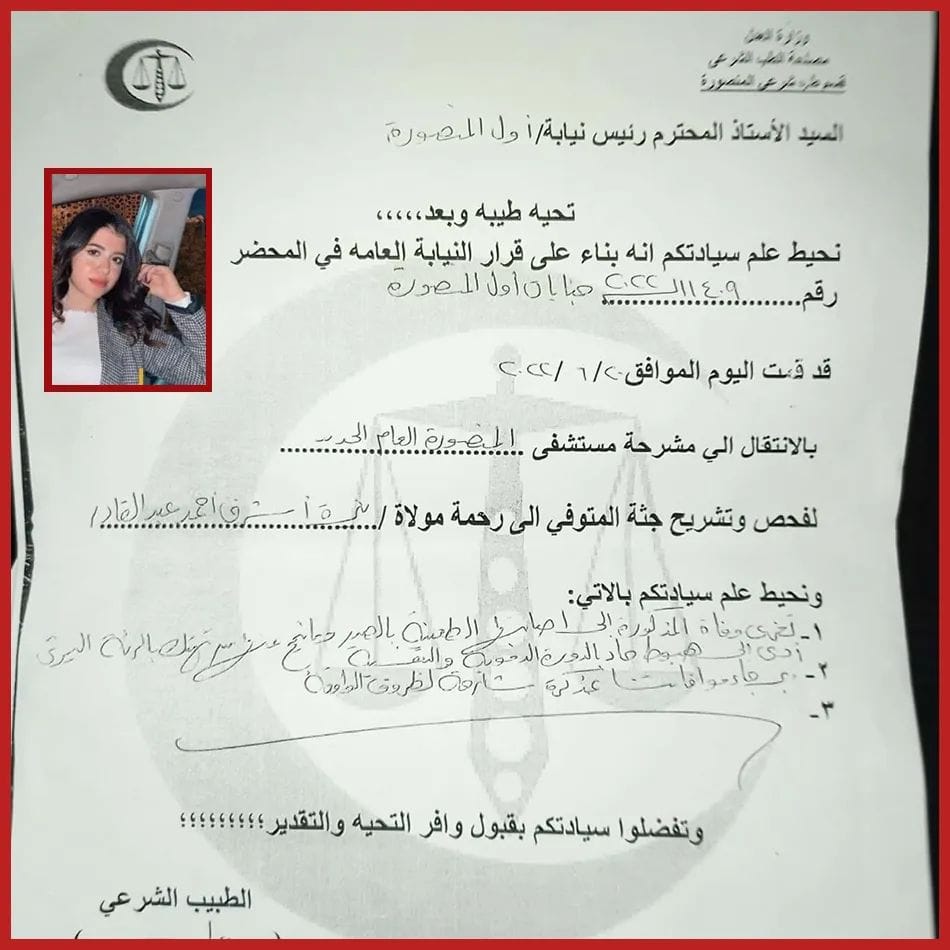 وزارة العدل
مصلحة الطب الشرعي
قسم طب شرعي المنصورة
السيد الأستاذ المحترم رئيس نيابة/ أول المنصورة
تحيه طيبه وبعد،،،،،
نحيط علم سيادتكم انه بناء على قرار النيابة العامه في المحضر
رقم......١١٤٠٩ لسنة ٢٠٢٢ جنايات أول المنصورة
قد قمت اليوم الموافق ٢٠/ ٦ /٢٠٢٢
بالانتقال الي مشرحة مستشفى المنصورة العام
لفحص وتشريح جثة المتوفي الى رحمة مولاة / نيرة أشرف أحمد عبد القادر/
ونحيط علم سيادتكم بالاتي:
١- تعزى وفاة المذكورة إلى اصابتها الطعنية بالصدر وما نتج عنها من تهتك بالرئة اليسرى
أدى إلى هبوط حاد بالدورة الدموية والتنفسية
٢- برجاء موافاتنا بمذكرة شارحة لظروف الواقعة
٣-
وتفضلوا سيادتكم بقبول وافر التحيه والتقدير؛؛؛؛؛؛؛؛؛
الطبيب الشرعي